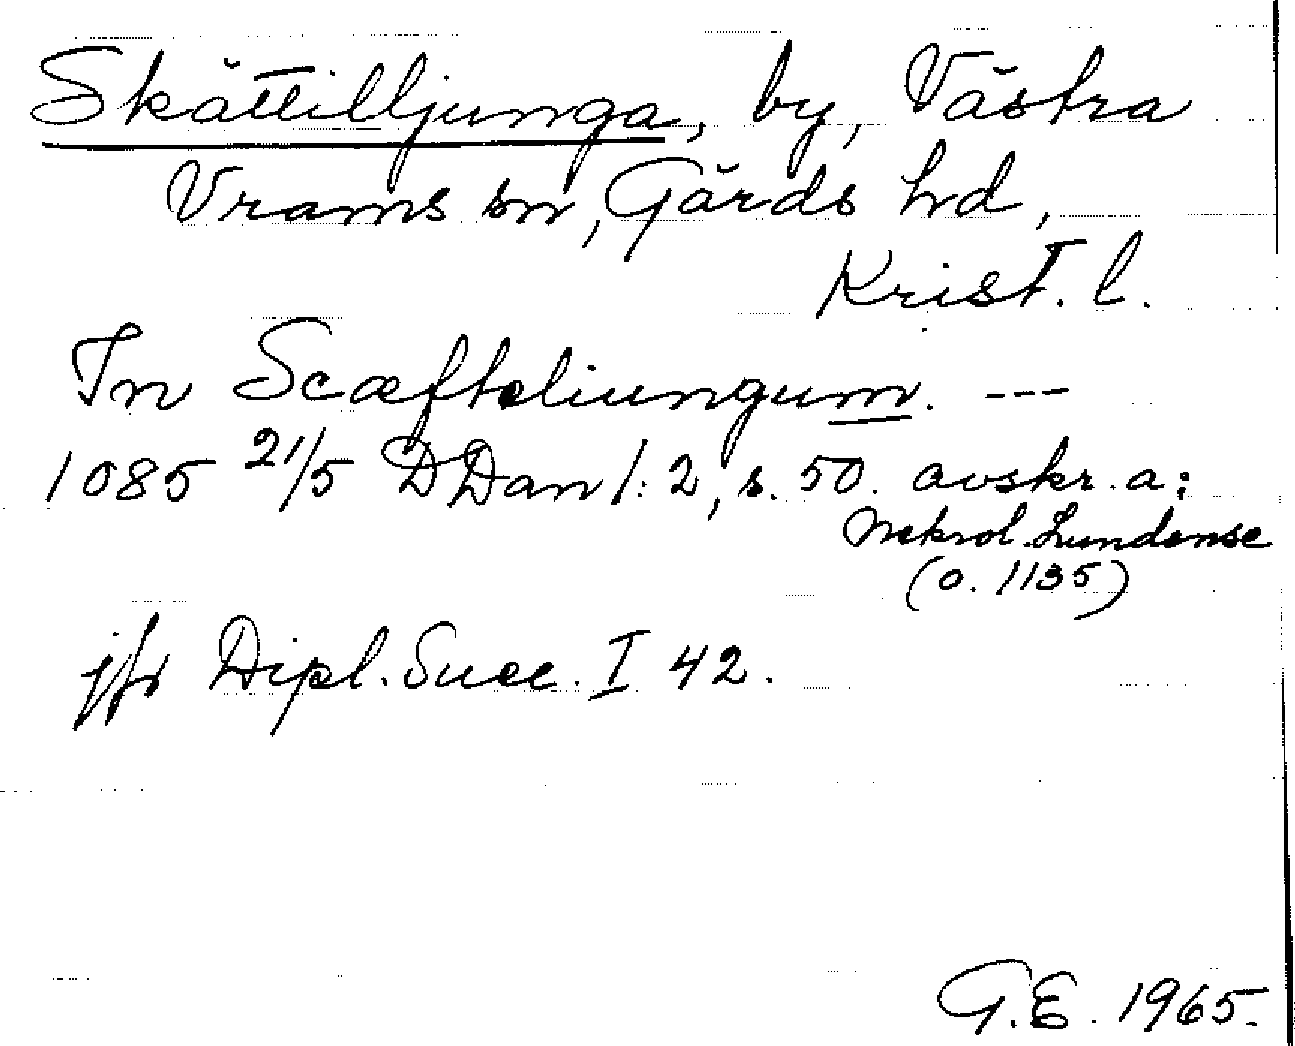 Skättilljunga, by, Västra
Vrams sn, Gärds hd,
Krist. l.
In Scæfteliungum. ---
1085 21/5 DDan 1:2, s. 50. avskr. a:
Nekrol. Lundense
(o. 1135)
jfr Dipl. Suec. I 42.
G.E. 1965.